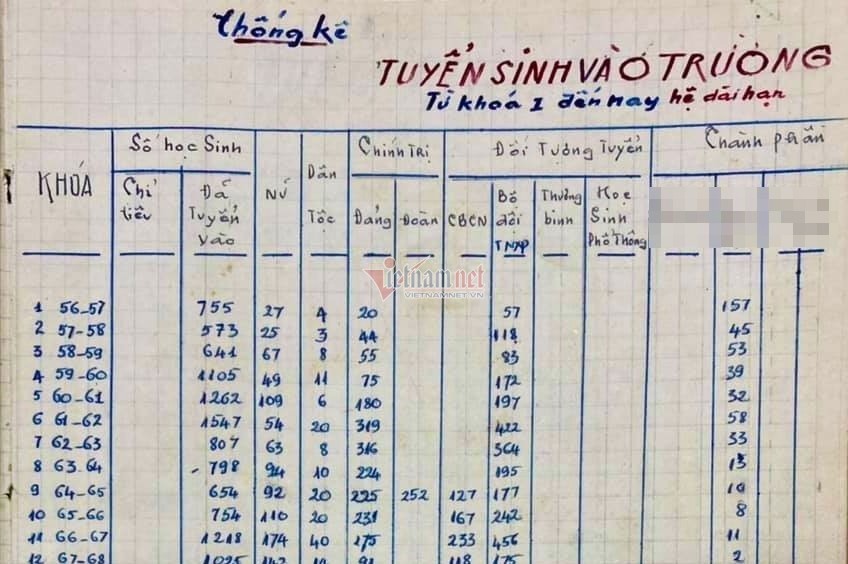 Thống kê
TUYỂN SINH VÀO TRƯỜNG
Từ khoá I đến nay hệ dài hạn
KHÓA Số học Sinh Nữ Dân Tộc Chính Trị Đối Tượng Tuyển Thành phần
Chỉ tiêu Đã Tuyển vào Đảng Đoàn CBCN Bộ đội TNXP Thương binh Học Sinh Phổ Thông
Vietnamnet
VIETNAMNET.VN
1 56-57 755 27 4 20 57 157
2 57-58 573 25 3 44 118 45
3 58-59 641 67 8 55 83 53
4 59-60 1105 49 11 75 172 39
5 60-61 1262 109 6 180 197 32
6 61-62 1547 54 20 319 422 58
7 62-63 807 63 8 316 364 33
8 63.64 798 94 10 224 195 13
9 64-65 654 92 20 225 252 127 177 10
10 65-66 754 110 20 231 167 242 8
11 66-67 1218 174 40 175 233 456 11
12 67-68 1025 118 175 2